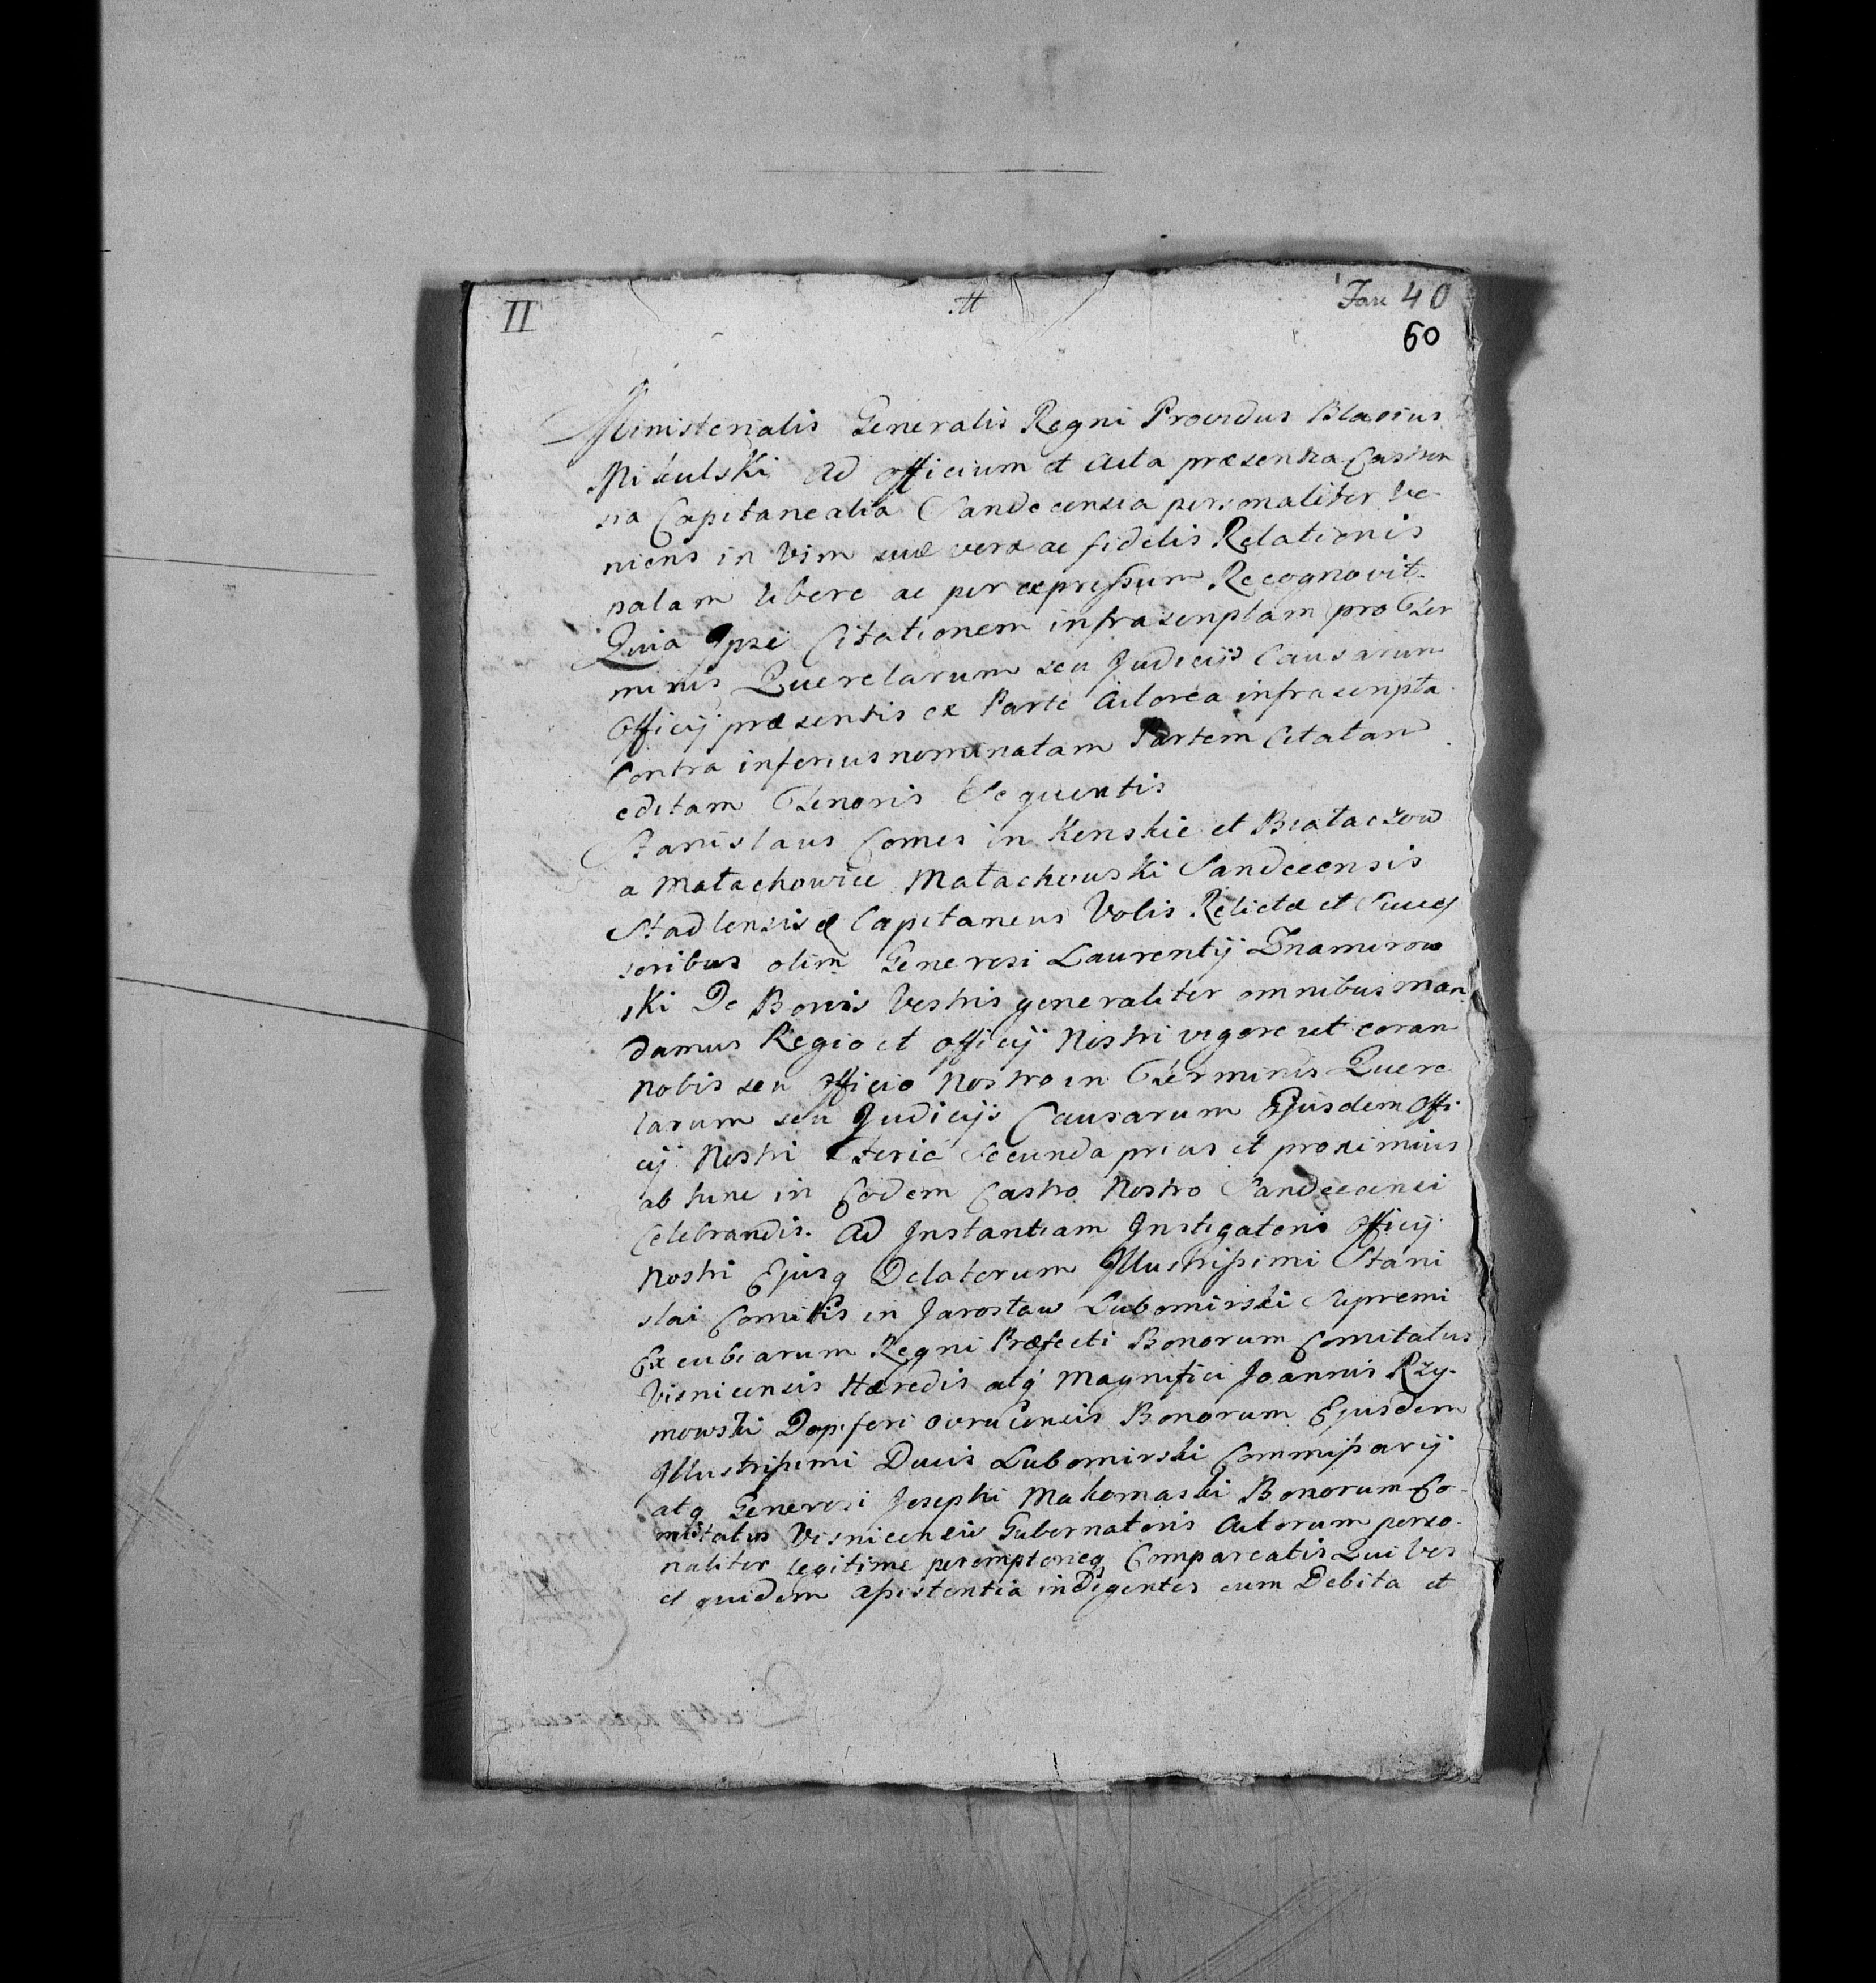 II
Fau 40
60
Ministerialis Generalis Regni Providus Blasius
Mikulski Ad officium et Acta præsentia Castren
sia Capitanealia Sandecensia personaliter Ve-
niens in Vim suæ veræ ac fidelis Relationis
palam libere ac per expressum Recognovit
Quia Ipse Citationem infrascriptam pro Ter
minis Querelarum seu Judicijs Causarum
Officij præsentis ex Parte Actorea infrascripta
Contra inferius nominatam Partem Citatam
editam Tenoris Sequentis
Stanislaus Comes in Konskie et Białaczow
a Małachowice Małachowski Sandecensis
Stadlensisq Capitaneus Vobis Relictæ et Succes
soribus olim Generosi Laurentij Znamirow
ski De Bonis Vestris generaliter omnibus man
damus Regio et officij Nostri vigore ut coram
Nobis seu Officio Nostro in Terminis Quere
larum seu Judicijs Causarum Ejusdem Offi
cij Nostri Feria Secunda prius et proximius
ab hinc in Eodem Castro Nostro Sandecensi
Celebrandis. Ad Instantiam Instigatoris Officij
Nostri Ejusq Delatorum Illustrissimi Stani
slai Comitis in Jarosław Lubomirski Supremi
Excubiarum Regni Præfecti Bonorum Comitatus
Visnicensis Hæredis atq Magnifici Joannis Rzy-
mowski Dapiferi Ovrucensis Bonorum Ejusdem
Illustrissimi Ducis Lubomirski Commissarij
atq Generosi Josephi Makomaski Bonorum Co-
mitatus Visnicensis Gubernatoris Actorum perso-
naliter legitime peremptorieq Compareatis Qui Vos
et quidem assistentia indigentes cum Debita et